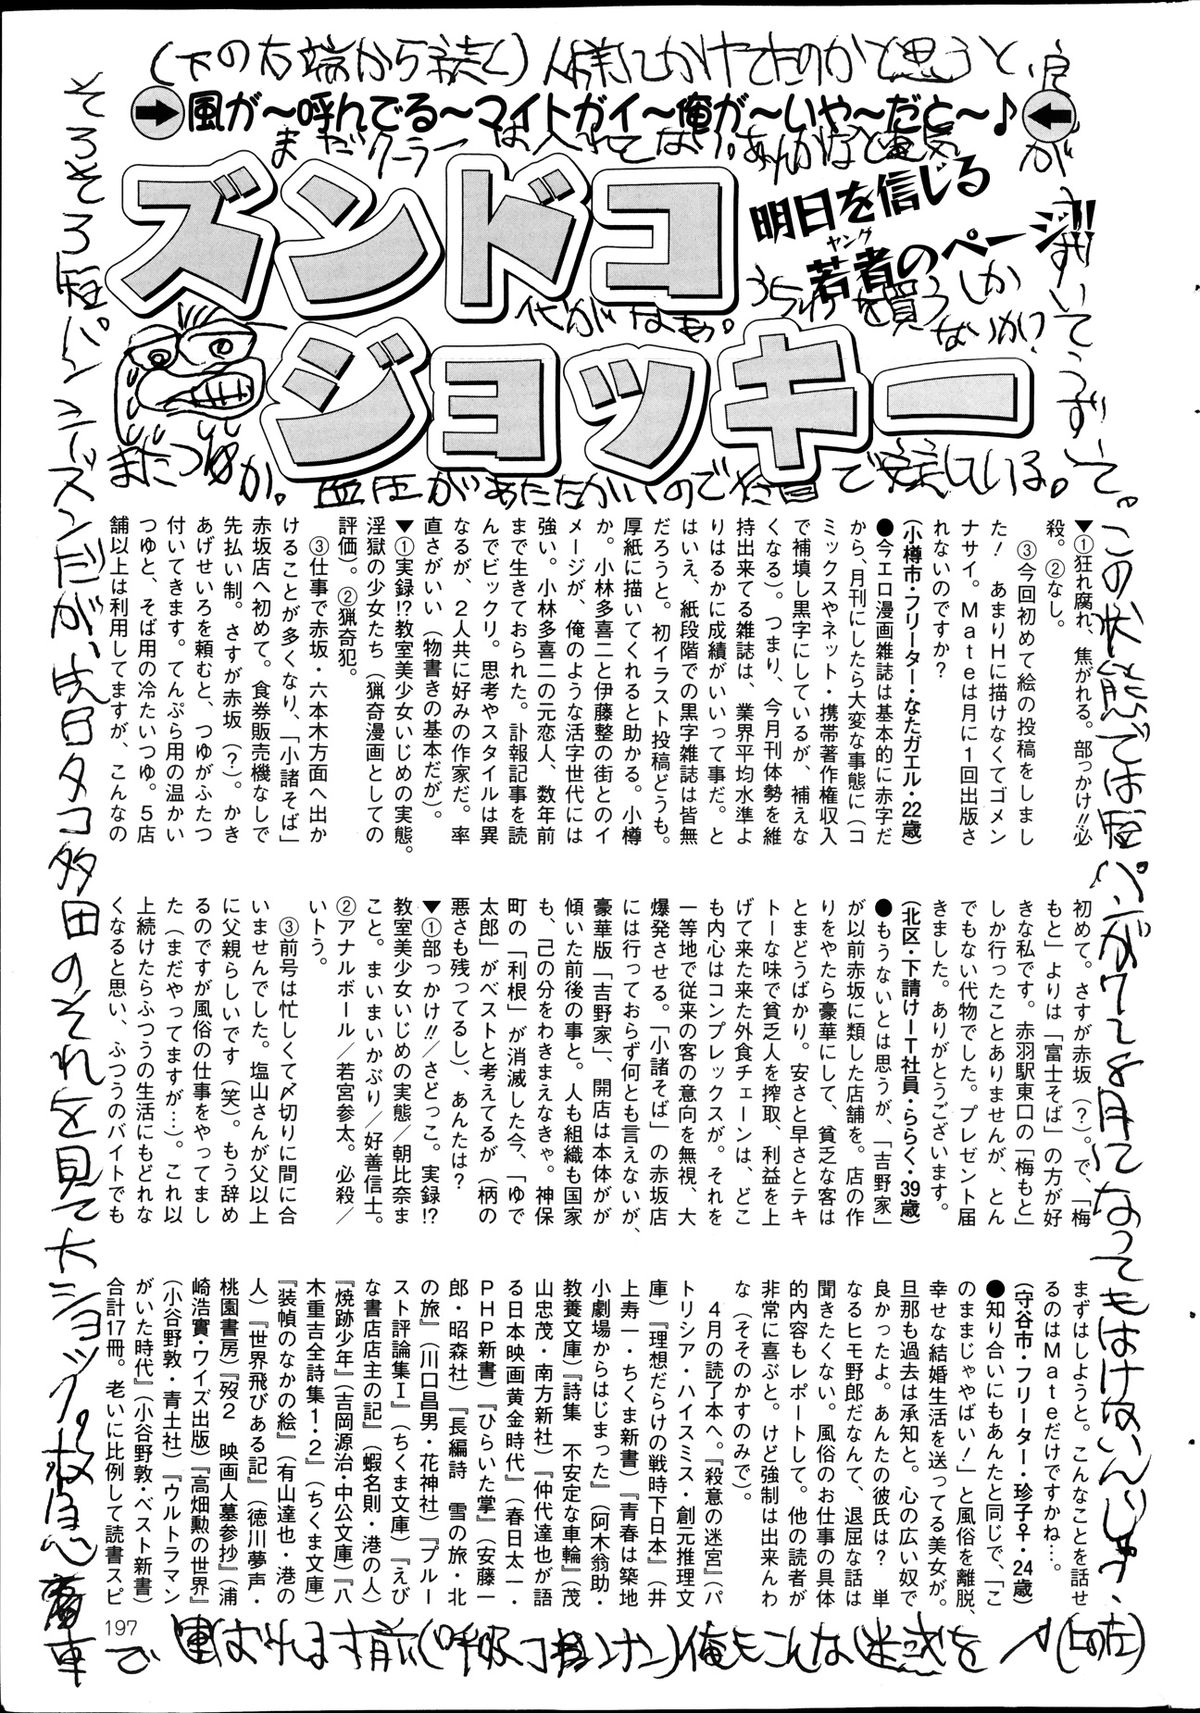 風が〜呼んでる〜マイトガイ〜俺が〜いや〜だと〜♪
ズンドコ
ジョッキー
明日を信じる
若者のページ!!
ヤング
▼①狂れ腐れ、焦がれる。部っかけ!!必
殺。②なし。
③今回初めて絵の投稿をしまし
た! あまりHに描けなくてゴメン
ナサイ。Mateは月に1回出版さ
れないのですか?
(小樽市・フリーター・なたガエル・22歳)
●今エロ漫画雑誌は基本的に赤字だ
から、月刊にしたら大変な事態に(コ
ミックスやネット・携帯著作権収入
で補填し黒字にしているが、補えな
くなる)。つまり、今月刊体勢を維
持出来てる雑誌は、業界平均水準よ
りはるかに成績がいいって事だ。と
はいえ、紙段階での黒字雑誌は皆無
だろうと。初イラスト投稿どうも。
厚紙に描いてくれると助かる。小樽
か。小林多喜二と伊藤整の街とのイ
メージが、俺のような活字世代には
強い。小林多喜二の元恋人、数年前
まで生きておられた。訃報記事を読
んでビックリ。思考やスタイルは異
なるが、2人共に好みの作家だ。率
直さがいい(物書きの基本だが)。
▼①実録!?教室美少女いじめの実態。
淫獄の少女たち(猟奇漫画としての
評価)。②猟奇犯。
③仕事で赤坂・六本木方面へ出か
けることが多くなり、「小諸そば」
赤坂店へ初めて。食券販売機なしで
先払い制。さすが赤坂(?)。かき
あげせいろを頼むと、つゆがふたつ
付いてきます。てんぷら用の温かい
つゆと、そば用の冷たいつゆ。5店
舗以上は利用してますが、こんなの
初めて。さすが赤坂(?)。で、「梅
もと」よりは「富士そば」の方が好
きな私です。赤羽駅東口の「梅もと」
しか行ったことありませんが、とん
でもない代物でした。プレゼント届
きました。ありがとうございます。
(北区・下請けIT社員・ららく・39歳)
●もうないとは思うが、「吉野家」
が以前赤坂に類した店舗を。店の作
りをやたら豪華にして、貧乏な客は
とまどうばかり。安さと早さとテキ
トーな味で貧乏人を搾取、利益を上
げて来た来た外食チェーンは、どこ
も内心はコンプレックスが。それを
一等地で従来の客の意向を無視、大
爆発させる。「小諸そば」の赤坂店
には行っておらず何とも言えないが、
豪華版「吉野家」、開店は本体がが
傾いた前後の事と。人も組織も国家
も、己の分をわきまえなきゃ。神保
町の「利根」が消滅した今、「ゆで
太郎」がベストと考えてるが(柄の
悪さも残ってるし)、あんたは?
▼①部っかけ!!/さどっこ。実録!?
教室美少女いじめの実態/朝比奈ま
こと。まいまいかぶり/好善信士。
②アナルボール/若宮参太。必殺/
いトう。
③前号は忙しくて〆切りに間に合
いませんでした。塩山さんが父以上
に父親らしいです(笑)。もう辞め
るのですが風俗の仕事をやってまし
た(まだやってますが…)。これ以
上続けたらふつうの生活にもどれな
くなると思い、ふつうのバイトでも
まずはしようと。こんなことを話せ
るのはMateだけですかね…。
(守谷市・フリーター・珍子♀・24歳)
●知り合いにもあんたと同じで、「こ
のままじゃやばい!」と風俗を離脱、
幸せな結婚生活を送ってる美女が。
旦那も過去は承知と。心の広い奴で
良かったよ。あんたの彼氏は? 単
なるヒモ野郎だなんて、退屈な話は
聞きたくない。風俗のお仕事の具体
的内容もレポートして。他の読者が
非常に喜ぶと。けど強制は出来んわ
な(そそのかすのみで)。
4月の読了本へ。『殺意の迷宮』(パ
トリシア・ハイスミス・創元推理文
庫)『理想だらけの戦時下日本』(井
上寿一・ちくま新書)『青春は築地
小劇場からはじまった』(阿木翁助・
教養文庫)『詩集 不安定な車輪』(茂
山忠茂・南方新社)『仲代達也が語
る日本映画黄金時代』(春日太一・
PHP新書)『ひらいた掌』(安藤一
郎・昭森社)『長編詩 雪の旅・北
の旅』(川口昌男・花神社)『ブルー
スト評論集Ⅰ』(ちくま文庫)『えび
な書店店主の記』(蝦名則・港の人)
『焼跡少年』(吉岡源治・中公文庫)『八
木重吉全詩集1・2』(ちくま文庫)
『装幀のなかの絵』(有山達也・港の
人)『世界飛びある記』(徳川夢声・
桃園書房)『歿2 映画人墓参抄』(浦
崎浩實・ワイズ出版)『高畑勲の世界』
(小谷野敦・青土社)『ウルトラマン
がいた時代』(小谷野敦・ベスト新書)
合計17冊。老いに比例して読書スピ
197
(下の右端から続く)
まだクーラーは入れてない。
またつゆか。
この状態では短パンがケて8月になってもはけないんじゃ…
そろそろ短パンシーズンだが、先日タコ多田のそれを見て大ショック。
俺もこんな迷惑を
(上の左)